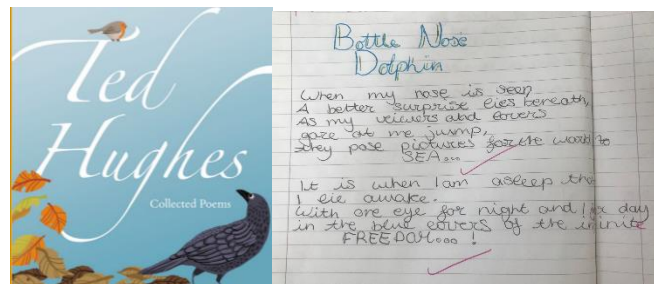 Ted
Hughes
Collected Poems
Bottle Nose
Dolphin
When my nose is seen
A better surprise lies beneath,
As my veiwers abd lovers
gaze at me jump,
they pose pictures for the world to
SEA...
It is when I am asleep tha
I lie awake.
With one eye for night and 1 for day
in the blue covers of the infinite
FREEDOM...!